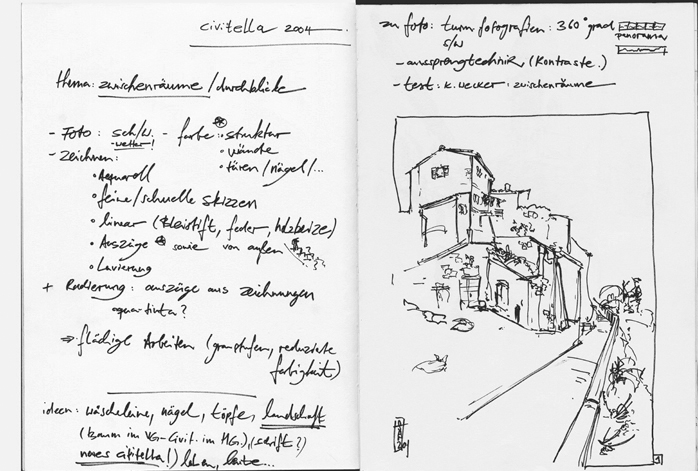 civitella 2004
thema: zwischenräume / durchblicke
- Foto: sch/w. - farbe: • struktur
-wetter! • wände
- Zeichnen: • türen / nägel / ...
• Aquarell
• feine / schnelle skizzen
• linear (Bleistift, feder, holzbeize)
• Auszüge sowie von außen
• Lavierung
+ Radierung: auszüge aus zeichnungen
aquatinta?
⇒ flächige Arbeiten (graustufen, reduzierte
farbigkeit)
ideen: wäscheleine, nägel, töpfe, landschaft
(baum im VG - Civit. im HG.), (schrift?)
neues civitella!) leben, leute...
zu foto: turm fotografien: 360°grad
panorama
s/w
- aussprengtechnik (Kontraste.)
- text: K. Wecker: zwischenräume
1